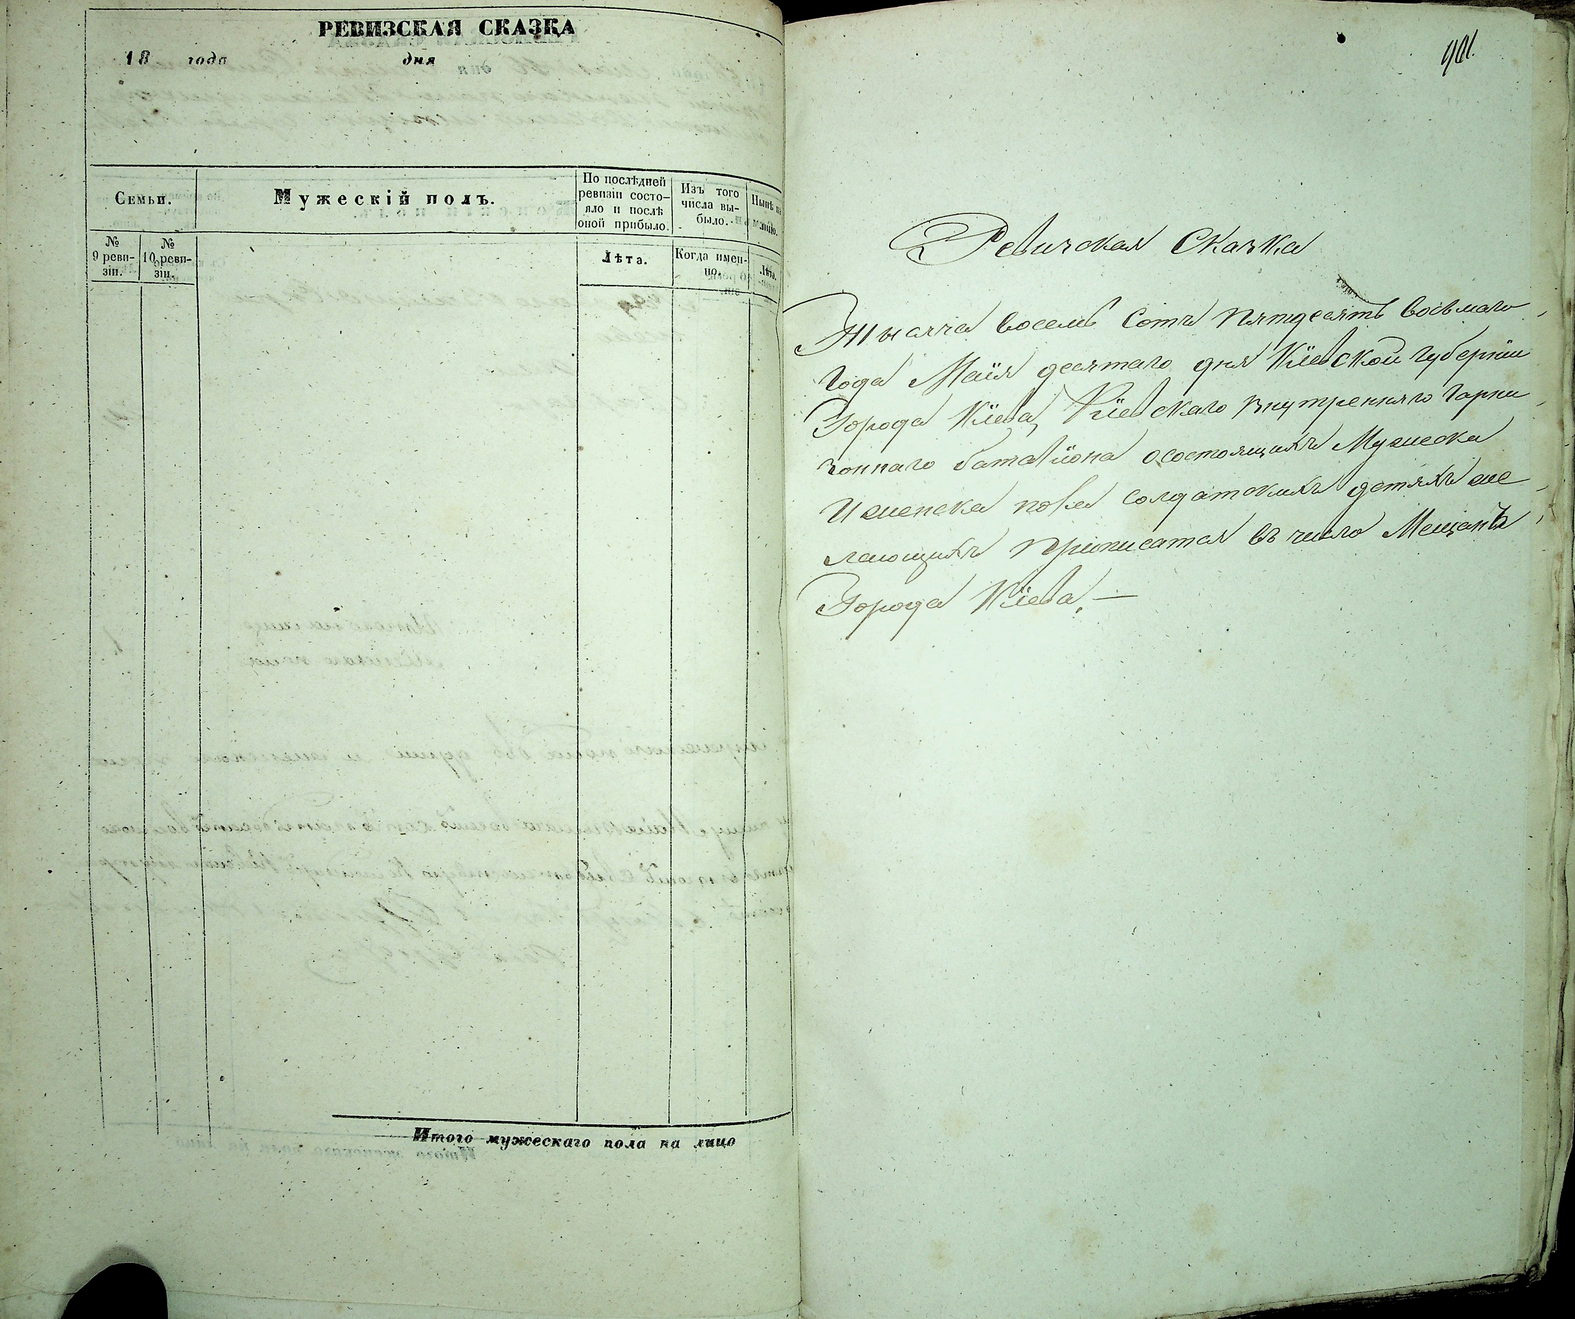 РЕВИЗСКАЯ СКАЗКА
18 года дня
Семьи.
Мужескій полъ.
По послѣдней
ревизіи состо-
яло и послѣ
оной прибыло.
Изъ того
числа вы-
было.
Нынѣ на
№
9 реви-
зіи.
№
10 реви-
зіи.
Лѣта.
Когда имен-
но.
Лѣта.
Итого мужескаго пола на лицо
Ревизская Сказка
Тысяча восемь сотъ пятдесятъ восьмаго
года Маія десятаго дня Кіевской губерніи
Города Кіева, Кіевскаго внутренняго Гарни
зоннаго баталіона о состоящихъ Мужеска
И женска пола солдатскихъ детяхъ же
лающихъ приписатся въ число Мещанъ
Города Кіева. —